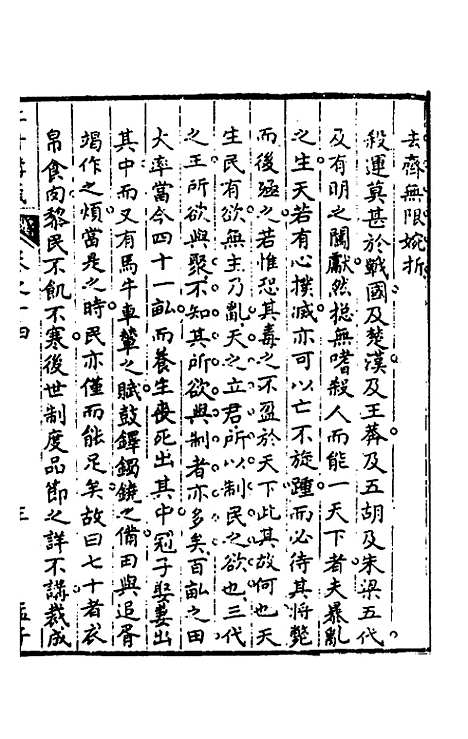 去齊無限婉折
殺運莫甚於戰國及楚漢及王莽及五胡及朱梁五代
及有明之闖獻然搃無嗜殺人而能一天下者夫暴亂
之生天若有心撲滅亦可以亡不旋踵而必待其將斃
而後殛之若惟恐其毒之不盈於天下此其故何也天
生民有欲無主乃亂天之立君所以制民之欲也三代
之王所欲與聚不知其所欲與制者亦多矣百畝之田
大率當今四十一畝而養生喪死出其中冠子娶妻出
其中而又有馬牛車輦之賦鼓鐸鐲鐃之備田與追胥
竭作之煩當是之時民亦僅而能足矣故曰七十者衣
帛食肉黎民不飢不寒後世制度品節之詳不講裁成
卷之十四 三 孟子